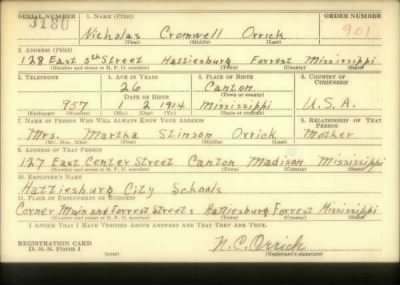 SERIAL NUMBER 1. NAME (Print) ORDER NUMBER
Nicholas Cromwell Orrick
(First) (Middle) (Last)
2. ADDRESS (Print)
128 East 5th Street Hattiesburg Forrest Mississippi
(Number and street or R. F. D. number) (Town) (County) (State)
3. TELEPHONE 4. AGE IN YEARS 5. PLACE OF BIRTH 6. COUNTRY OF CITIZENSHIP
26 Canton
DATE OF BIRTH (Town or county)
957 1 2 1914 Mississippi U.S.A.
(Exchange) (Number) (Mo.) (Day) (Yr.) (State or country)
7. NAME OF PERSON WHO WILL ALWAYS KNOW YOUR ADDRESS 8. RELATIONSHIP OF THAT PERSON
Mrs. Martha Stinson Orrick Mother
(Mr., Mrs., Miss) (First) (Middle) (Last)
9. ADDRESS OF THAT PERSON
127 East Center Street Canton Madison Mississippi
(Number and street or R. F. D. number) (Town) (County) (State)
10. EMPLOYER'S NAME
Hattiesburg City Schools
11. PLACE OF EMPLOYMENT OR BUSINESS
Corner Main and Forrest Streets Hattiesburg Forrest Mississippi
(Number and street or R. F. D. number) (Town) (County) (State)
I AFFIRM THAT I HAVE VERIFIED ABOVE ANSWERS AND THAT THEY ARE TRUE.
N. C. Orrick
REGISTRATION CARD
D. S. S. Form 1
(over) (Registrant's signature)